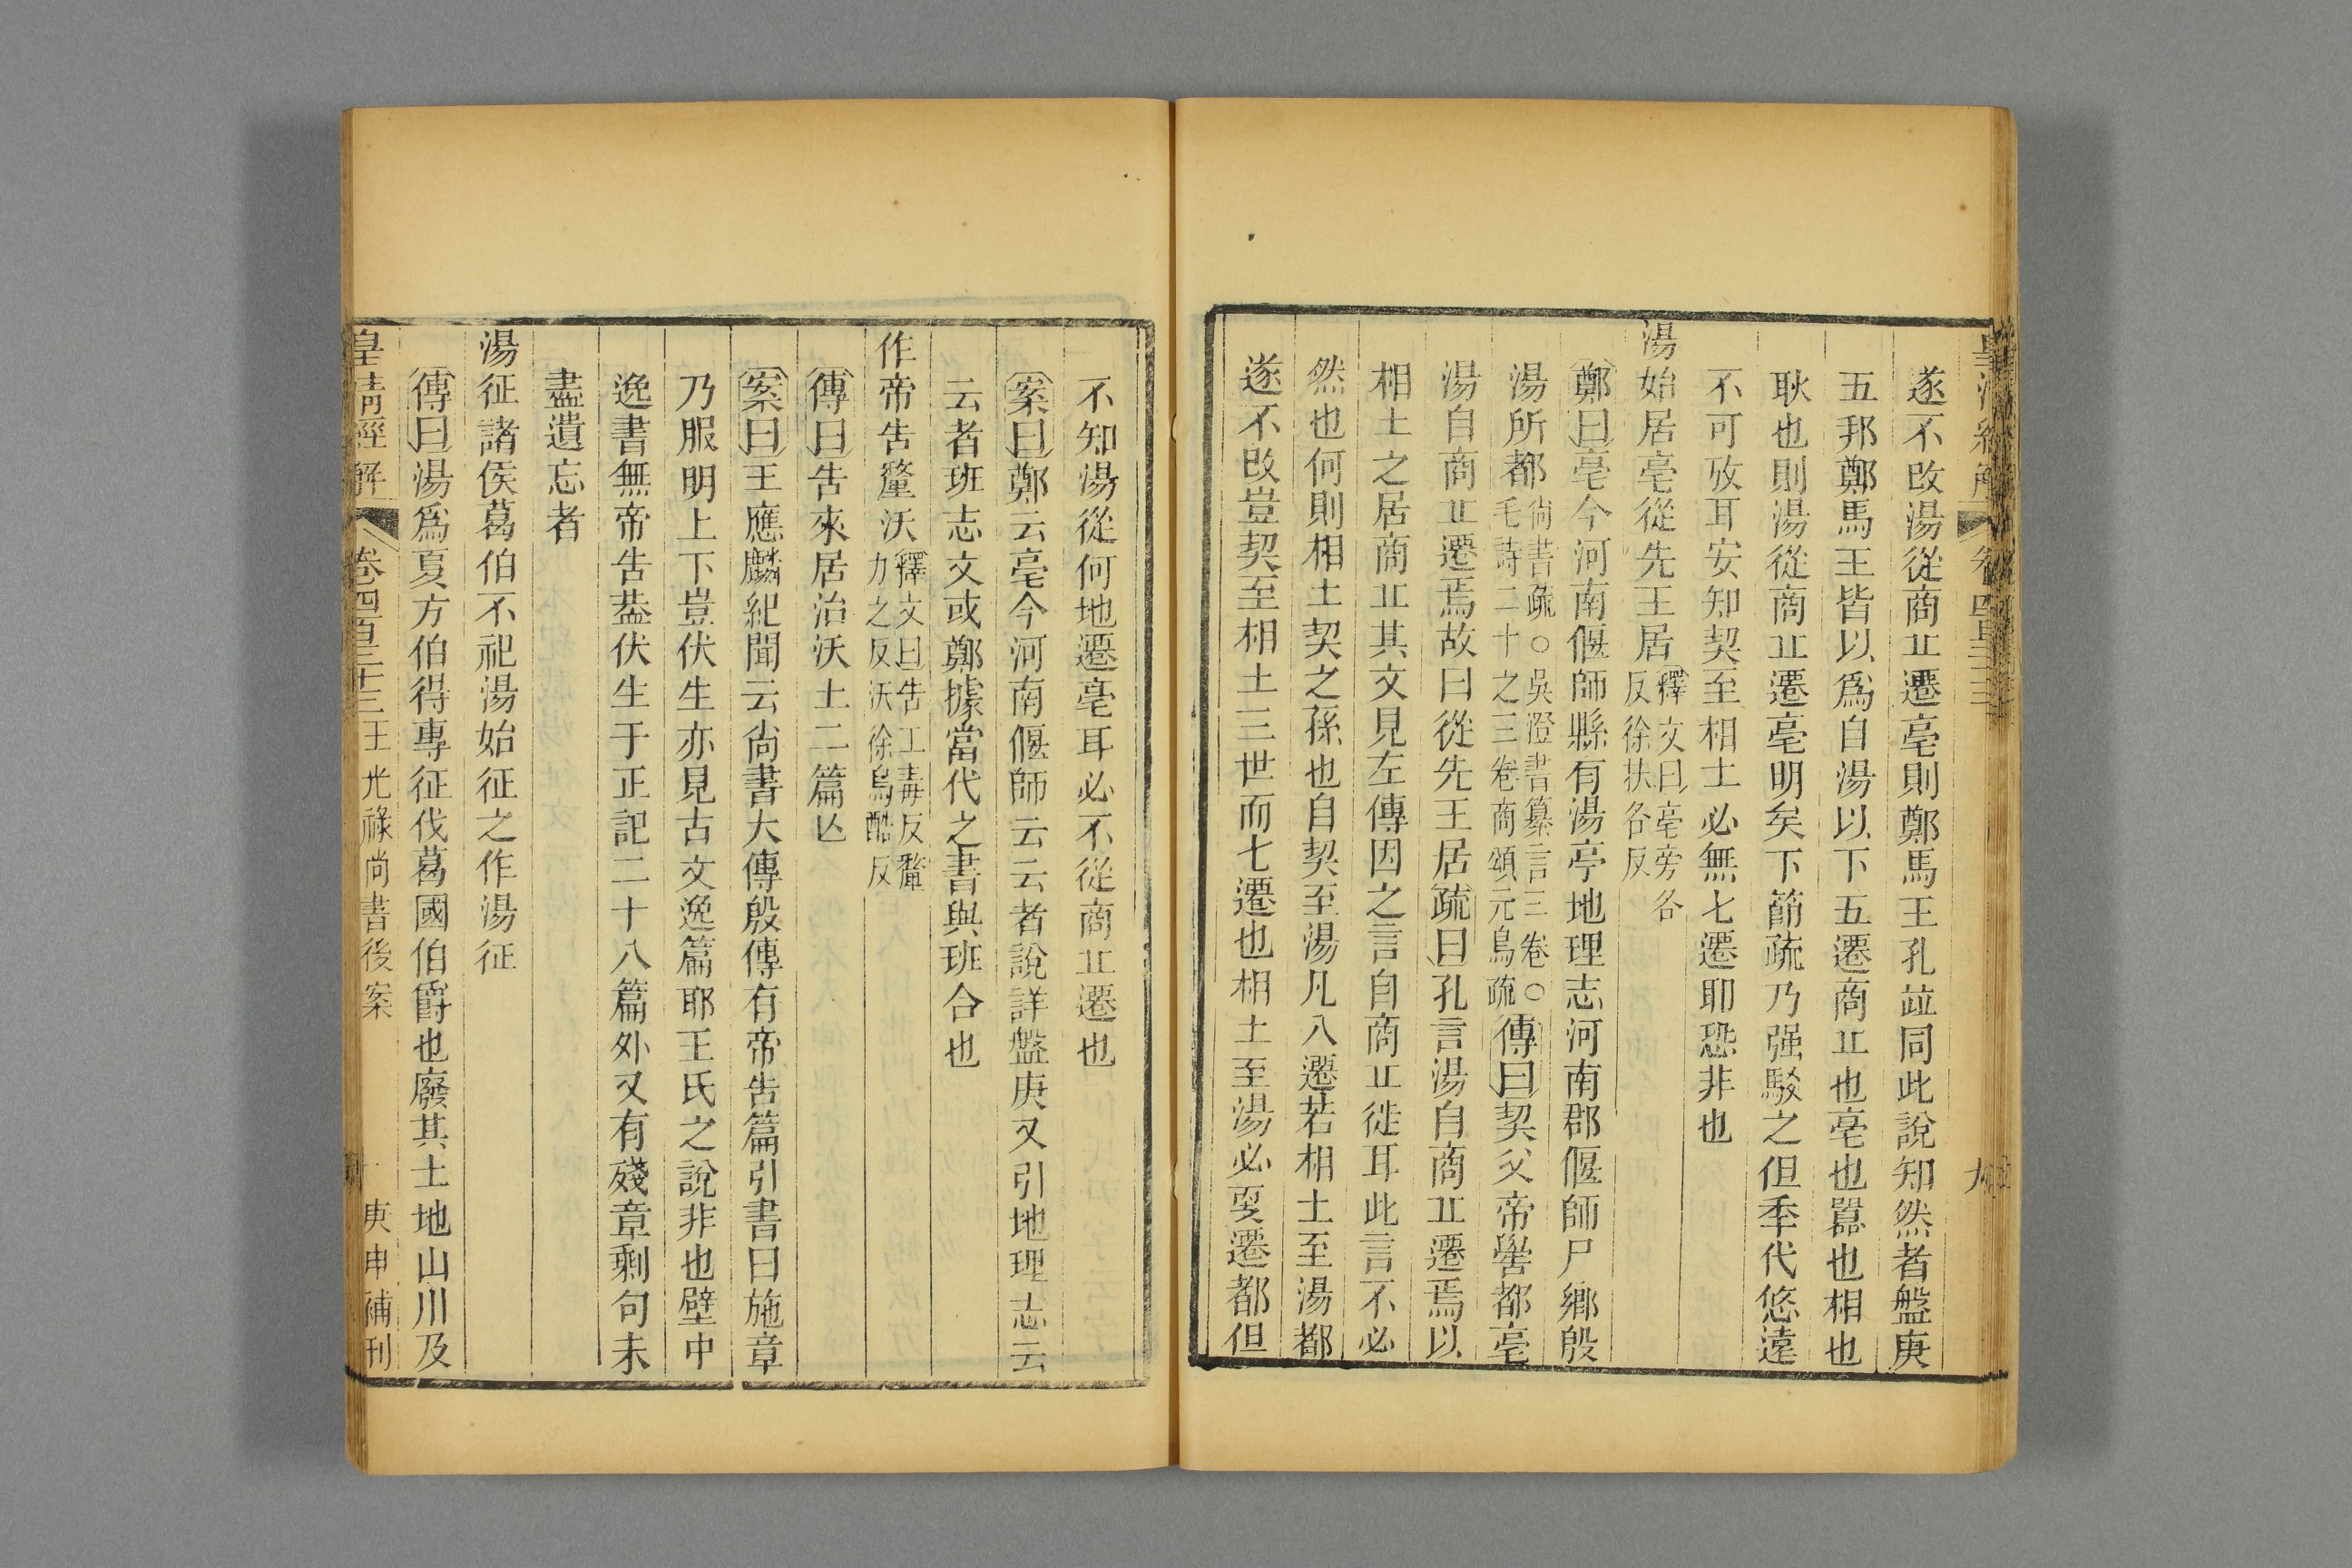 遂不改湯從商丠遷亳則鄭馬王孔竝同此說知然者盤庚
五邦鄭馬王皆以爲自湯以下五遷商丠也亳也囂也相也
耿也則湯從商丠遷亳明矣下節疏乃强駁之但季代悠遠
不可攷耳安知契至相土必無七遷耶恐非也
湯始居亳從先王居釋文曰亳旁各反徐扶各反
鄭曰亳今河南偃師縣有湯亭地理志河南郡偃師尸鄉殷
湯所都尙書疏○吳澄書纂言三卷○毛詩二十之三卷商頌元鳥疏傳曰契父帝嚳都亳
湯自商丠遷焉故曰從先王居疏曰孔言湯自商丠遷焉以
相土之居商丠其文見左傳因之言自商丠徙耳此言不必
然也何則相土契之孫也自契至湯凡八遷若相土至湯都
遂不改豈契至相土三世而七遷也相土至湯必更遷都但
不知湯從何地遷亳耳必不從商丠遷也
案曰鄭云亳今河南偃師云云者說詳盤庚又引地理志云
云者班志文或鄭據當代之書與班合也
作帝告釐沃釋文曰告工毒反釐力之反沃徐烏酷反
傳曰告來居治沃土二篇亾
案曰王應麟紀聞云尙書大傳殷傳有帝告篇引書曰施章
乃服明上下豈伏生亦見古文逸篇耶王氏之說非也壁中
逸書無帝告葢伏生于正記二十八篇外又有殘章剩句未
盡遺忘者
湯征諸侯葛伯不祀湯始征之作湯征
傳曰湯爲夏方伯得專征伐葛國伯爵也廢其土地山川及
皇清經解 卷四百三十三 王光祿尚書後案 庚申補刊